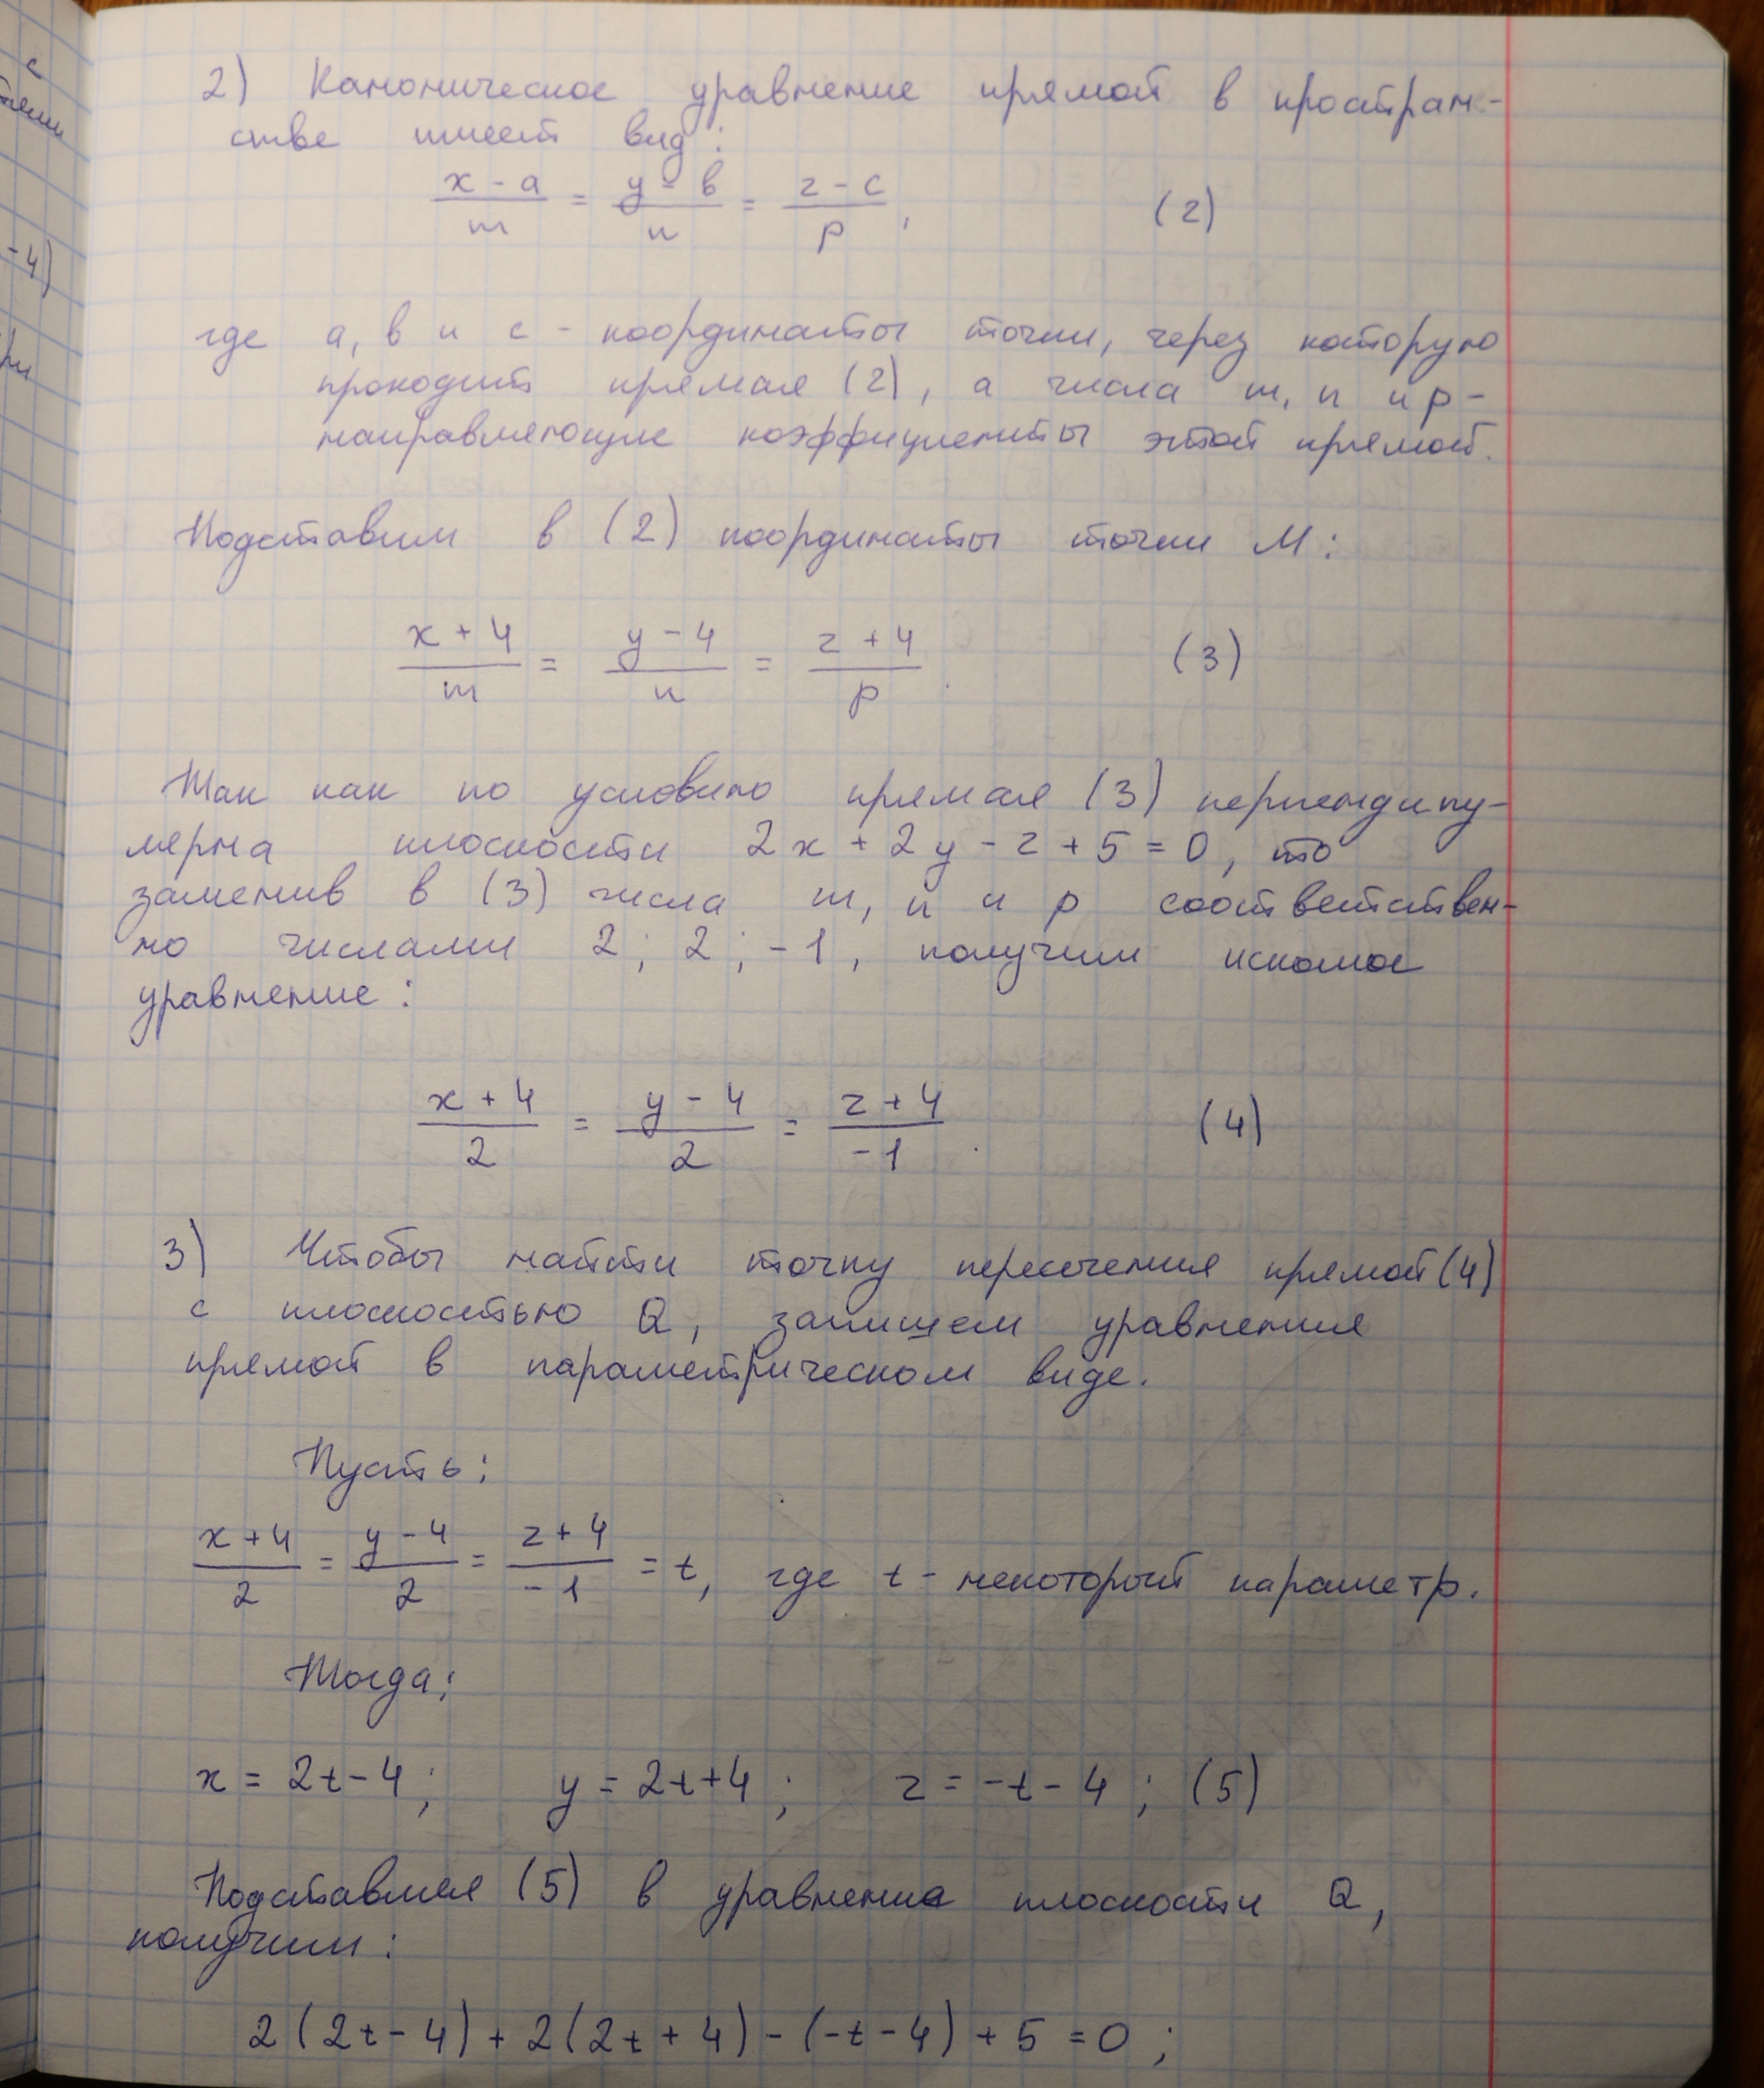 2) Каноническое уравнение прямой в простран-
стве имеет вид:
x - a / m = y - b / n = z - c / p , (2)
где a, b и c - координаты точки, через которую
проходит прямая (2), а числа m, n и p -
направляющие коэффициенты этой прямой.
Подставим в (2) координаты точки M:
x + 4 / m = y - 4 / n = z + 4 / p . (3)
Так как по условию прямая (3) перпендику-
лярна плоскости 2x + 2y - z + 5 = 0, то
заменив в (3) числа m, n и p соответствен-
но числами 2; 2; -1, получим искомое
уравнение:
x + 4 / 2 = y - 4 / 2 = z + 4 / -1 . (4)
3) Чтобы найти точку пересечения прямой (4)
с плоскостью Q, запишем уравнения
прямой в параметрическом виде.
Пусть:
x + 4 / 2 = y - 4 / 2 = z + 4 / -1 = t, где t - некоторый параметр.
Тогда:
x = 2t - 4; y = 2t + 4; z = -t - 4; (5)
Подставляя (5) в уравнение плоскости Q,
получим:
2(2t - 4) + 2(2t + 4) - (-t - 4) + 5 = 0;
-4)